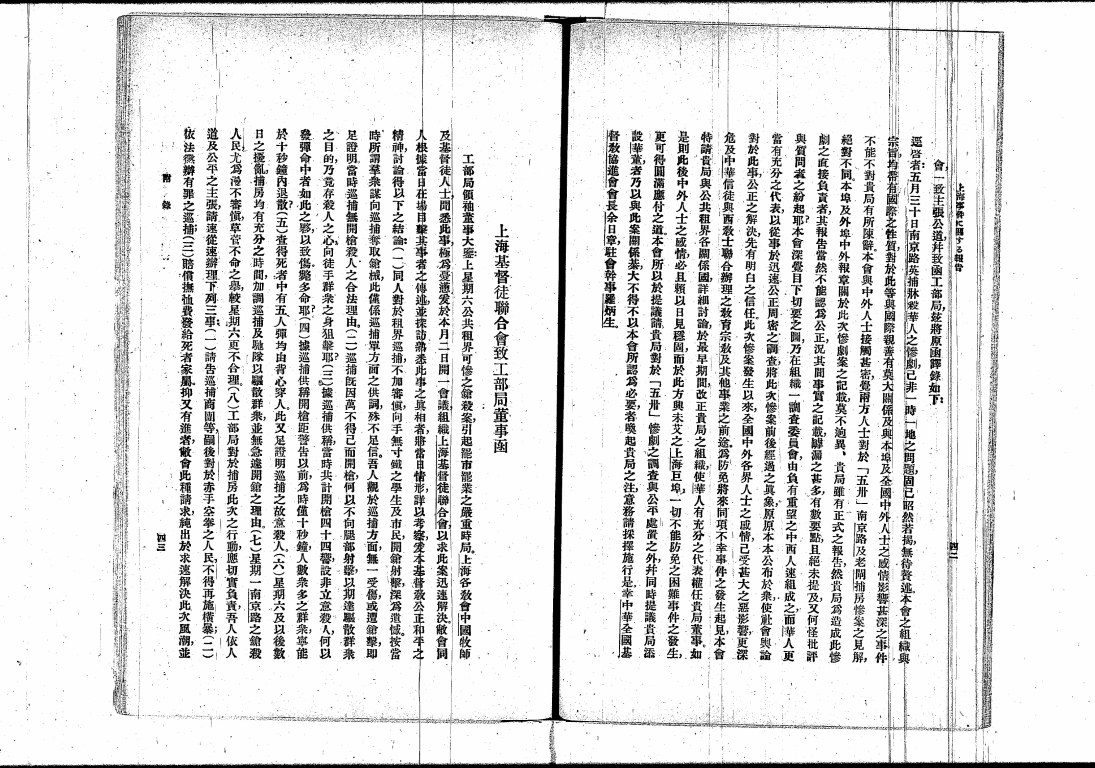 上海事件に関する報告
四二
會一致主張公道并致函工部局茲將原函譯錄如下:
逕啓者五月三十日南京路英捕牀殺華人之慘劇已非一時一地之問題固已昭然若揭無待贅述本會之組織與
宗旨均帶有國際之性質對於此等與國際親善有莫大關係及與本埠及全國中外人士之感情影響甚深之事件
不能不對貴局有所陳辭本會與中外人士接觸甚密覺兩方人士對於「五卅」南京路及老閘捕房慘案之見解
絕對不同本埠及外埠中外報章關於此次慘劇案之記載莫不逈異、貴局雖有正式之報告然貴局爲造成此慘
劇之直接負責者其報告當然不能認爲公正況其間事實之記載罅漏之甚多有數要點且絕未提及又何怪批評
與質問者之紛起耶本會深覺目下切要之圖乃在組織一調查委員會由負有重望之中西人速組成之而華人更
當有充分之代表以從事於迅速公正周密之調查將此次慘案前後經過之眞象原原本本公布於衆使社會輿論
對於此事公正之解決先有明白之信任此次慘案發生以來全國中外各界人士之感情已受甚大之惡影響更深
危及中華信徒與西敎士聯合辦理之敎育宗敎及其他事業之前途爲防免將來同項不幸事件之發生起見本會
特請貴局與公共租界各關係國詳細討論於最早期間改正貴局之組織使華人有充分之代表權任貴局董事如
是則此後中外人士之感情必且賴以日見穩固而於此方興未艾之上海巨埠一切不能防免之困難事件之發生
更可得圓滿應付之道本會所以於提議請貴局對於「五卅」慘劇之調查與公平處置之外幷同時提議貴局添
設華董者乃以與此案關係綦大不得不以本會所認爲必要者喚起貴局之注意務請採擇施行是幸中華全國基
督敎協進會會長余日章駐會幹事羅炳生
上海基督徒聯合會致工部局董事函
工部局領袖董事大鑒上星期六公共租界可慘之鎗殺案引起罷市罷業之嚴重時局上海各敎會中國牧師
及基督徒人士聞悉此事極爲憂遭爰於本月二日開一會議組織上海基督徒聯合會以求此案迅速解決敝會同
人根據當日在場目擊其事者之傳述並採訪熟悉此事之眞相者將當日情形詳以考察爰本基督敎公正和平之
精神討論得以下之結論(一)同人對於租界巡捕不加審愼向手無寸鐵之學生及市民開鎗射擊深爲遺憾按當
時所謂羣衆謀向巡捕奪取鎗械此僅係巡捕單方面之供詞殊不足信吾人觀於巡捕方面無一受傷或遭鎗擊即
足證明當時巡捕無開槍殺人之合法理由(二)巡捕旣因萬不得已而開槍何以不向腿部射擊以期達驅散群衆
之目的乃竟存殺人之心向徒手群衆之身狙擊耶(三)據巡捕供稱當時共計開槍四十四響設非立意殺人何以
發彈命中者如此之夥以致傷斃多命耶(四)據巡捕供稱開槍距警告以前爲時僅十秒鐘人數衆多之群衆寧能
於十秒鐘內退散(五)查得死者中有五人彈均由背心穿人此又足證明巡捕之故意殺人(六)星期六及以後數
日之擾亂捕房均有充分之時間加調巡捕及馳隊以驅散群衆並無急遽開鎗之理由(七)星期一南京路之鎗殺
人民尤爲漫不審愼草菅人命之舉較星期六更不合理(八)工部局對於捕房此次之行動應切實負責吾人依人
道及公平之主張請速從速辦理下列三事(一)請告巡捕商團等嗣後對於赤手空拳之人民不得再施橫暴(二)
依法懲辦有罪之巡捕(三)賠償撫恤費發給死者家屬抑又有進者敝會此種請求純出於求速解決此次風潮並
附錄
四三